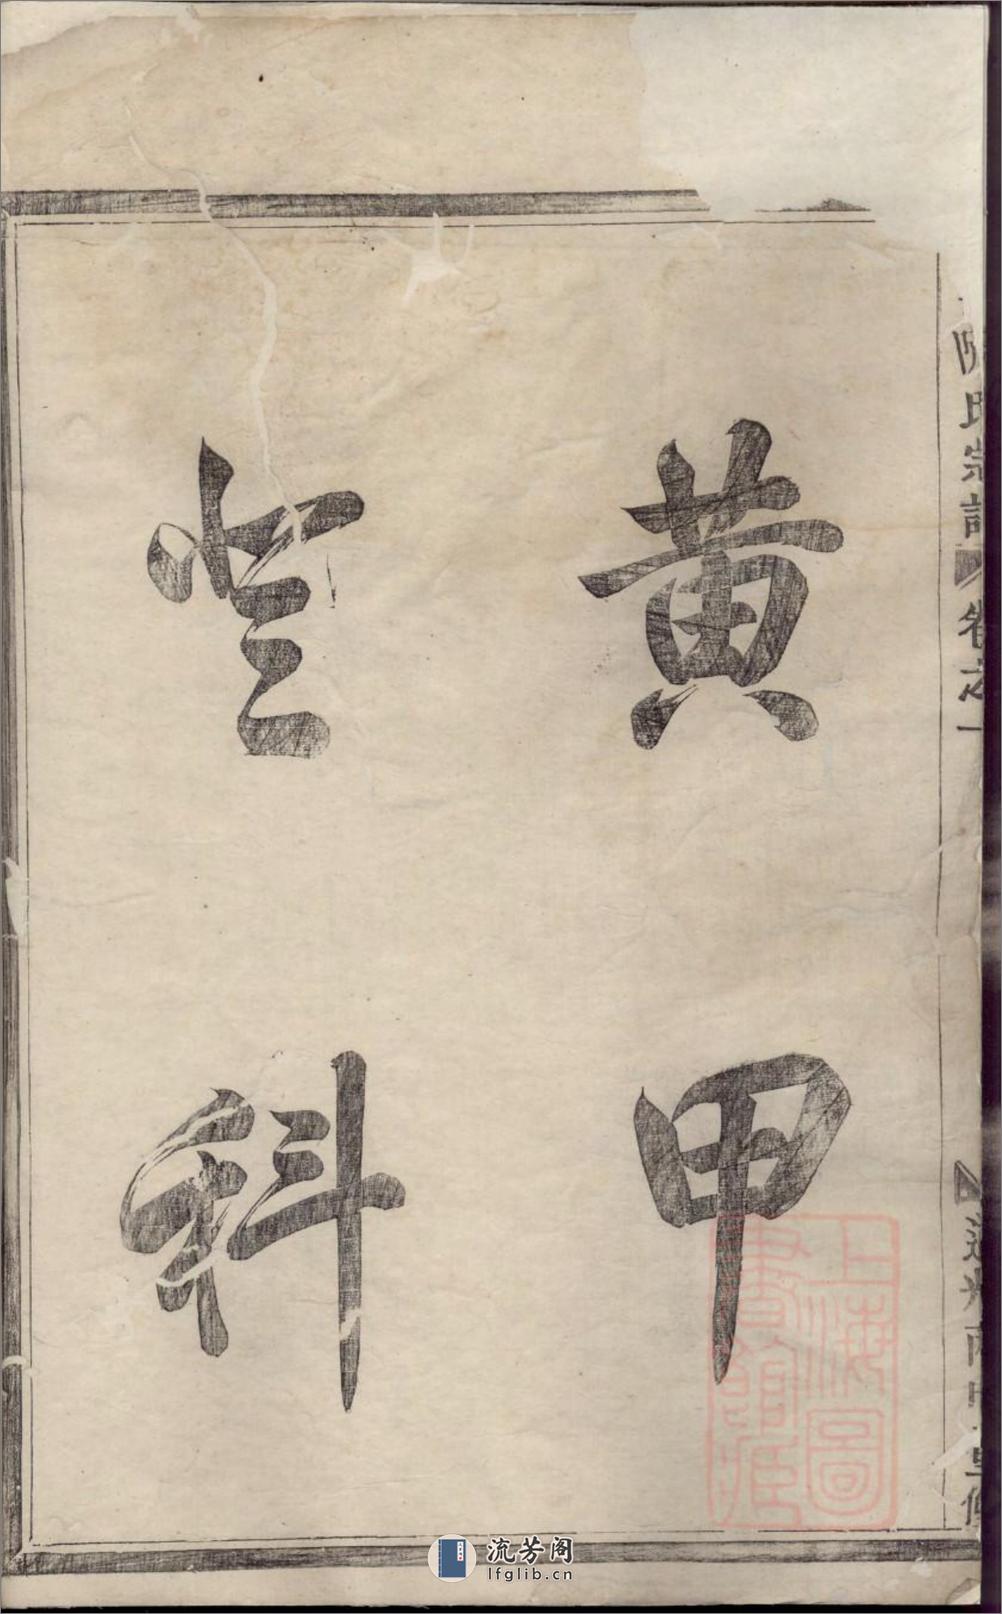 黄甲
登科
氏宗譜 卷之一
道光丙申
上海圖
書館藏
流芳阁
lfglib.cn